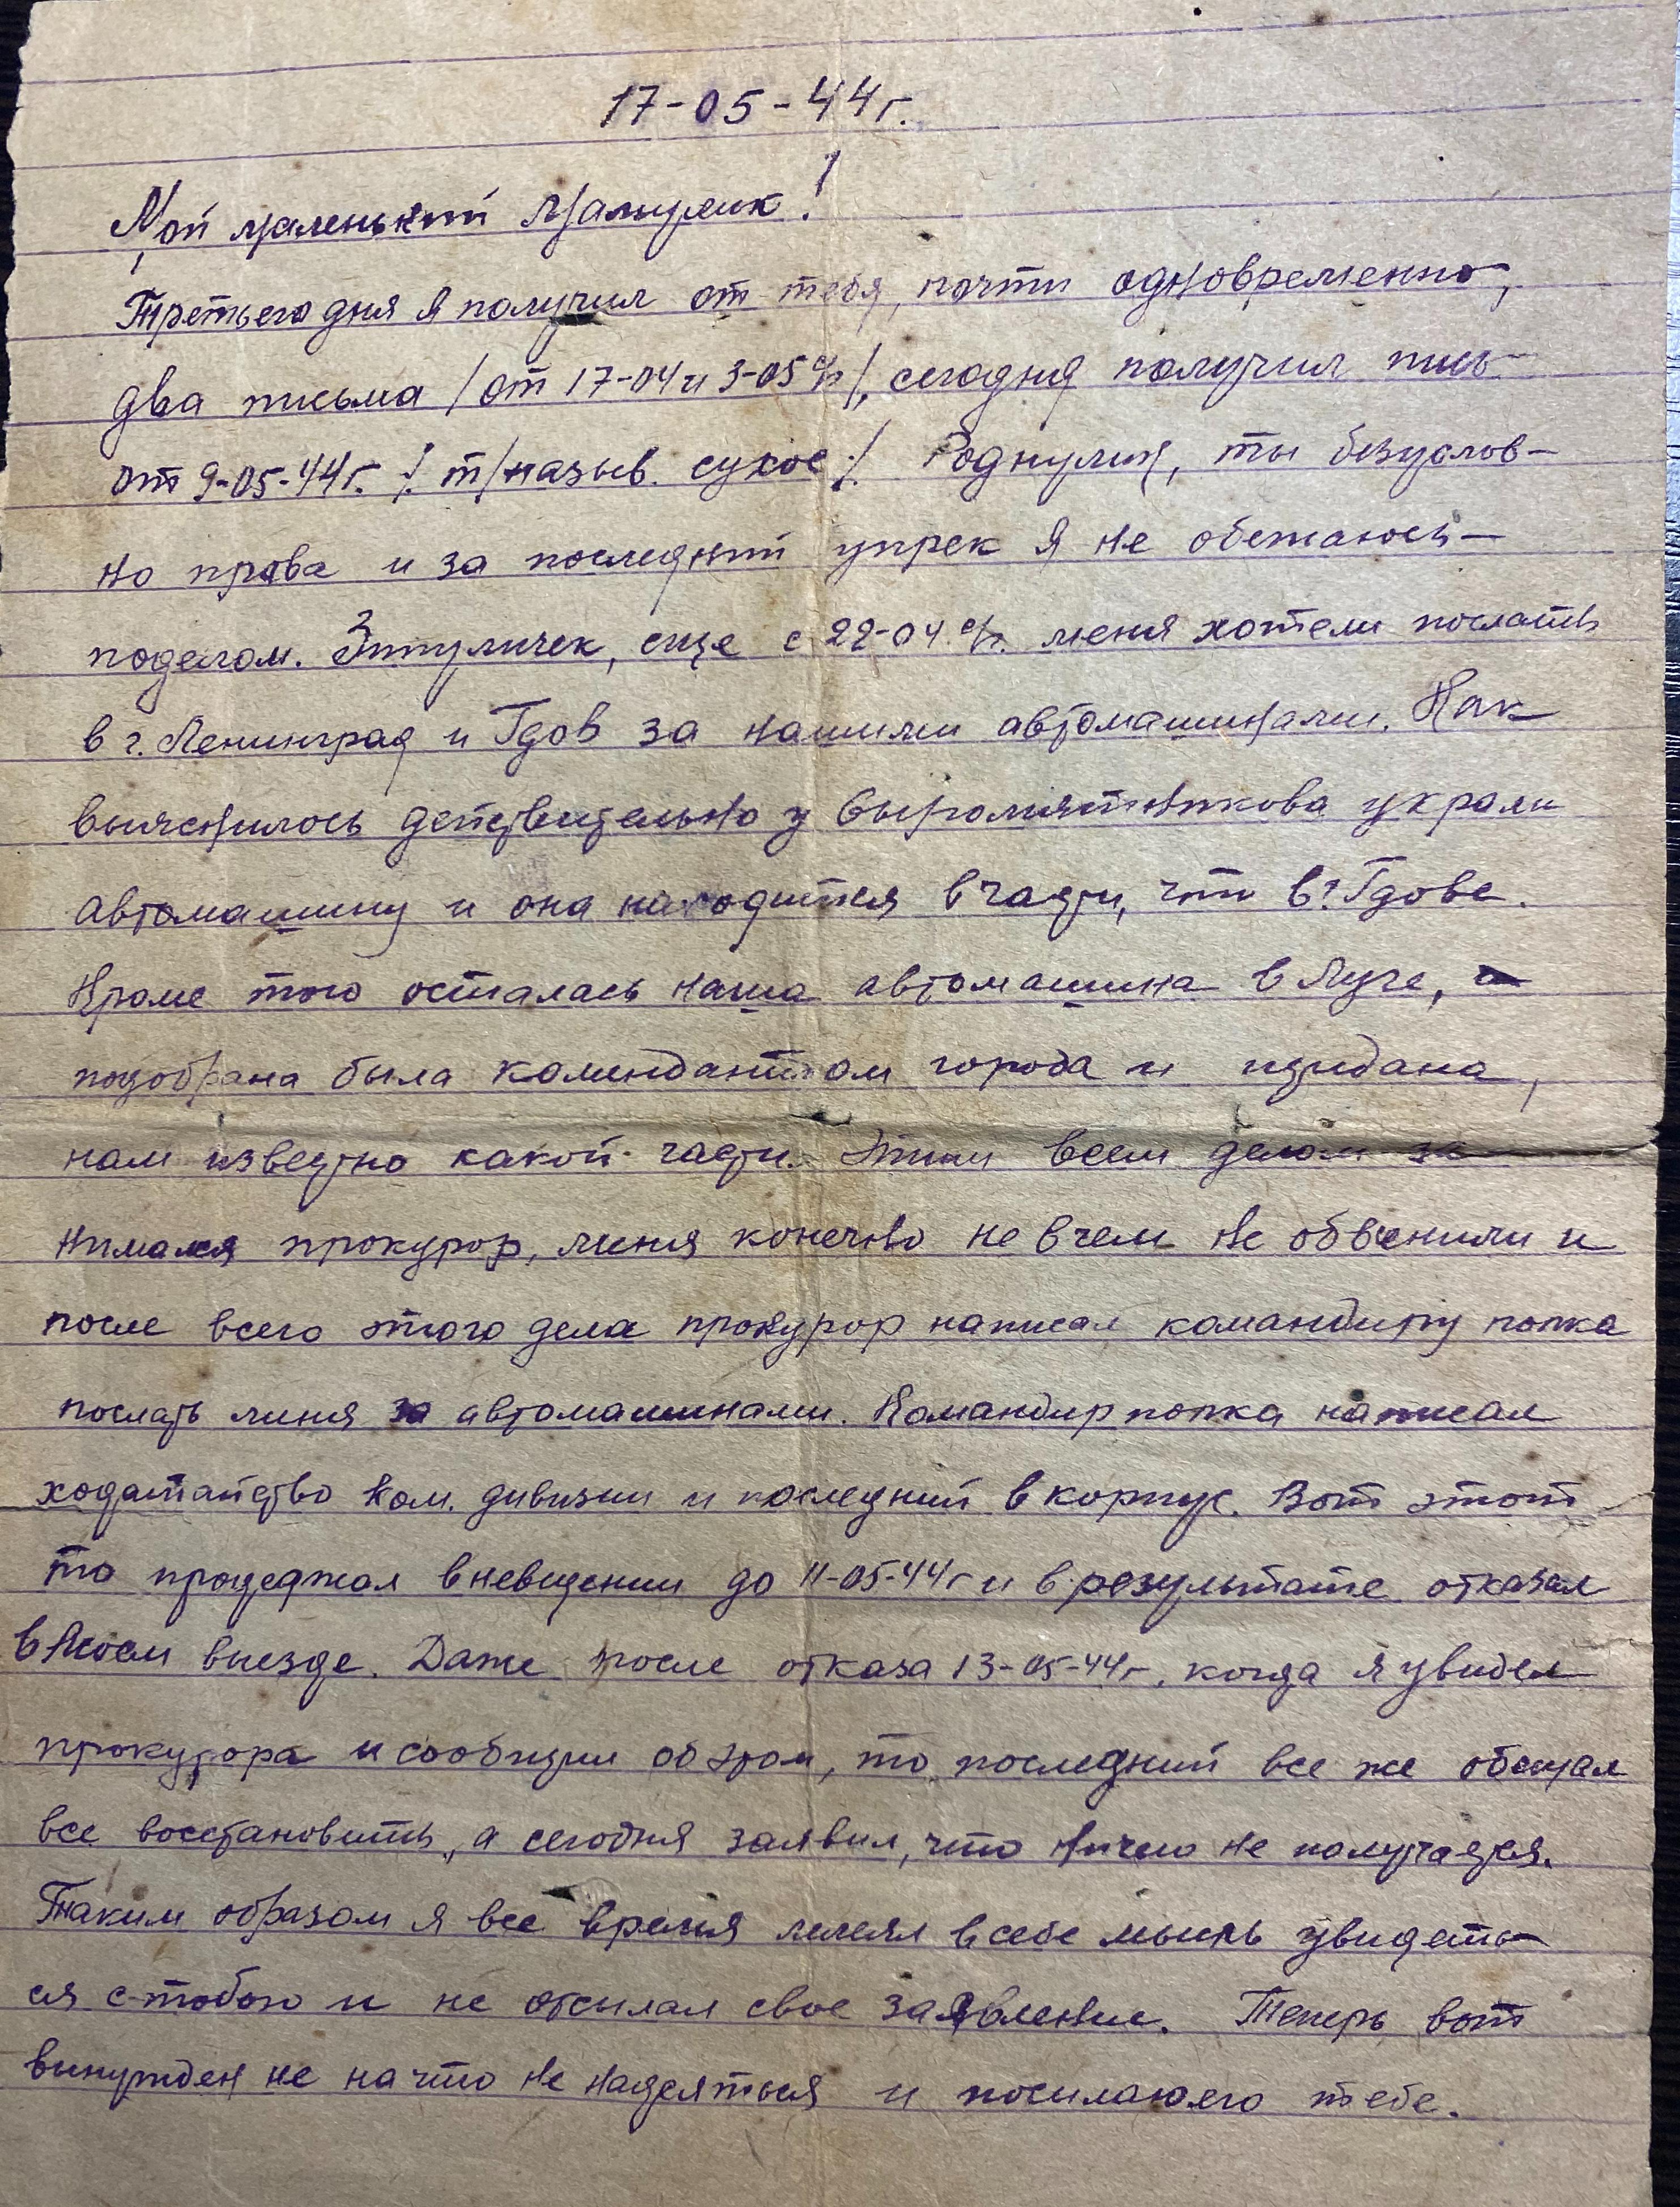 17-05-44г.
Мой маленький Мамулик!
Третьего дня я получил от тебя, почти одновременно,
два письма /от 17-04 и 3-05 с/г/, сегодня получил пись-
от 9-05-44г. /. т/назыв. сухое ./. Роднулия, ты безуслов-
но права и за последний упрек я не обежаюсь -
поделом. Энтуличек, еще с 22-04 с/г. меня хотели послать
в г. Ленинград и Гдов за нашими автомашинами. Как
выяснилось действительно у Выромятникова украли
автомашину и она находится в части, что в г. Гдове.
Кроме того осталась наша автомашина в Луге,
подобрана была комендантом города и придана,
нам известно какой части. Этим всем делом за-
нимался прокурор, меня конечно не в чем не обвинили и
после всего этого дела прокурор написал командиру полка
послать меня за автомашинами. Командир полка написал
ходатайство ком. дивизии и последний в корпус. Вот этот
то продержал в неведении до 11-05-44г и в результате отказал
в моем выезде. Даже после отказа 13-05-44г, когда я увидел
прокурора и сообщил об этом, то последний все же обещал
все восстановить, а сегодня заявил, что ничего не получается.
Таким образом я все время лелеял в себе мысль увидеть-
ся с тобою и не отсылал свое заявление. Теперь вот
вынужден не на что не надеяться и посылаю его тебе.